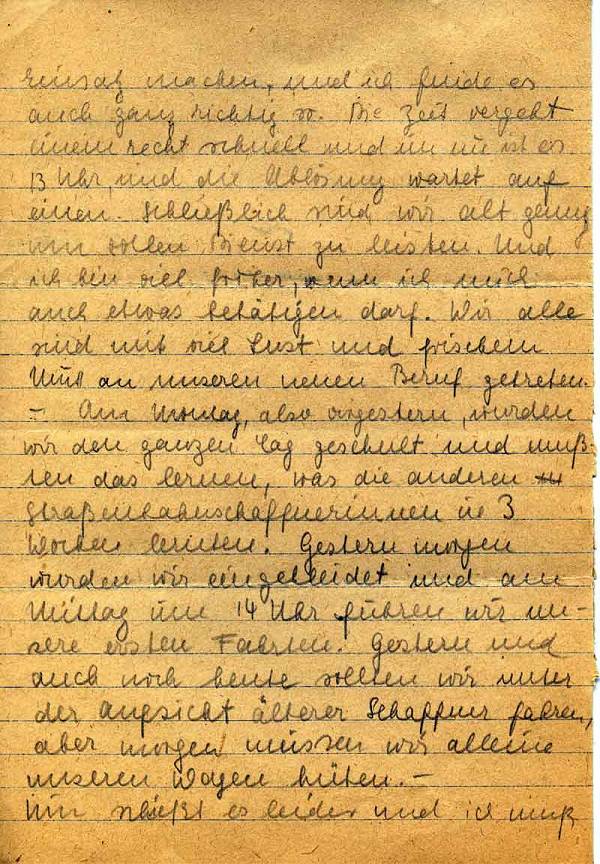 Einsatz machen, und ich finde es
auch ganz richtig so. Die Zeit vergeht
einem recht schnell und im nu ist es
13 Uhr, und die Ablösung wartet auf
einen. Schließlich sind wir alt genug
um vollen Dienst zu leisten. Und
ich bin viel froher, wenn ich mich
auch etwas betätigen darf. Wir alle
sind mit viel Lust und frischem
Mut an unseren neuen Beruf getreten.
– Am Montag, also vorgestern, wurden
wir den ganzen Tag geschult und muß-
ten das lernen, was die anderen
Straßenbahnschaffnerinnen in 3
Wochen lernten. Gestern morgen
wurden wir eingekleidet und am
Mittag um 14 Uhr fuhren wir un-
sere ersten Fahrten. Gestern und
auch noch heute sollten wir unter
der Aufsicht älterer Schaffner fahren,
aber morgen müssen wir alleine
unseren Wagen hüten. –
Nun schießt es leider und ich muß